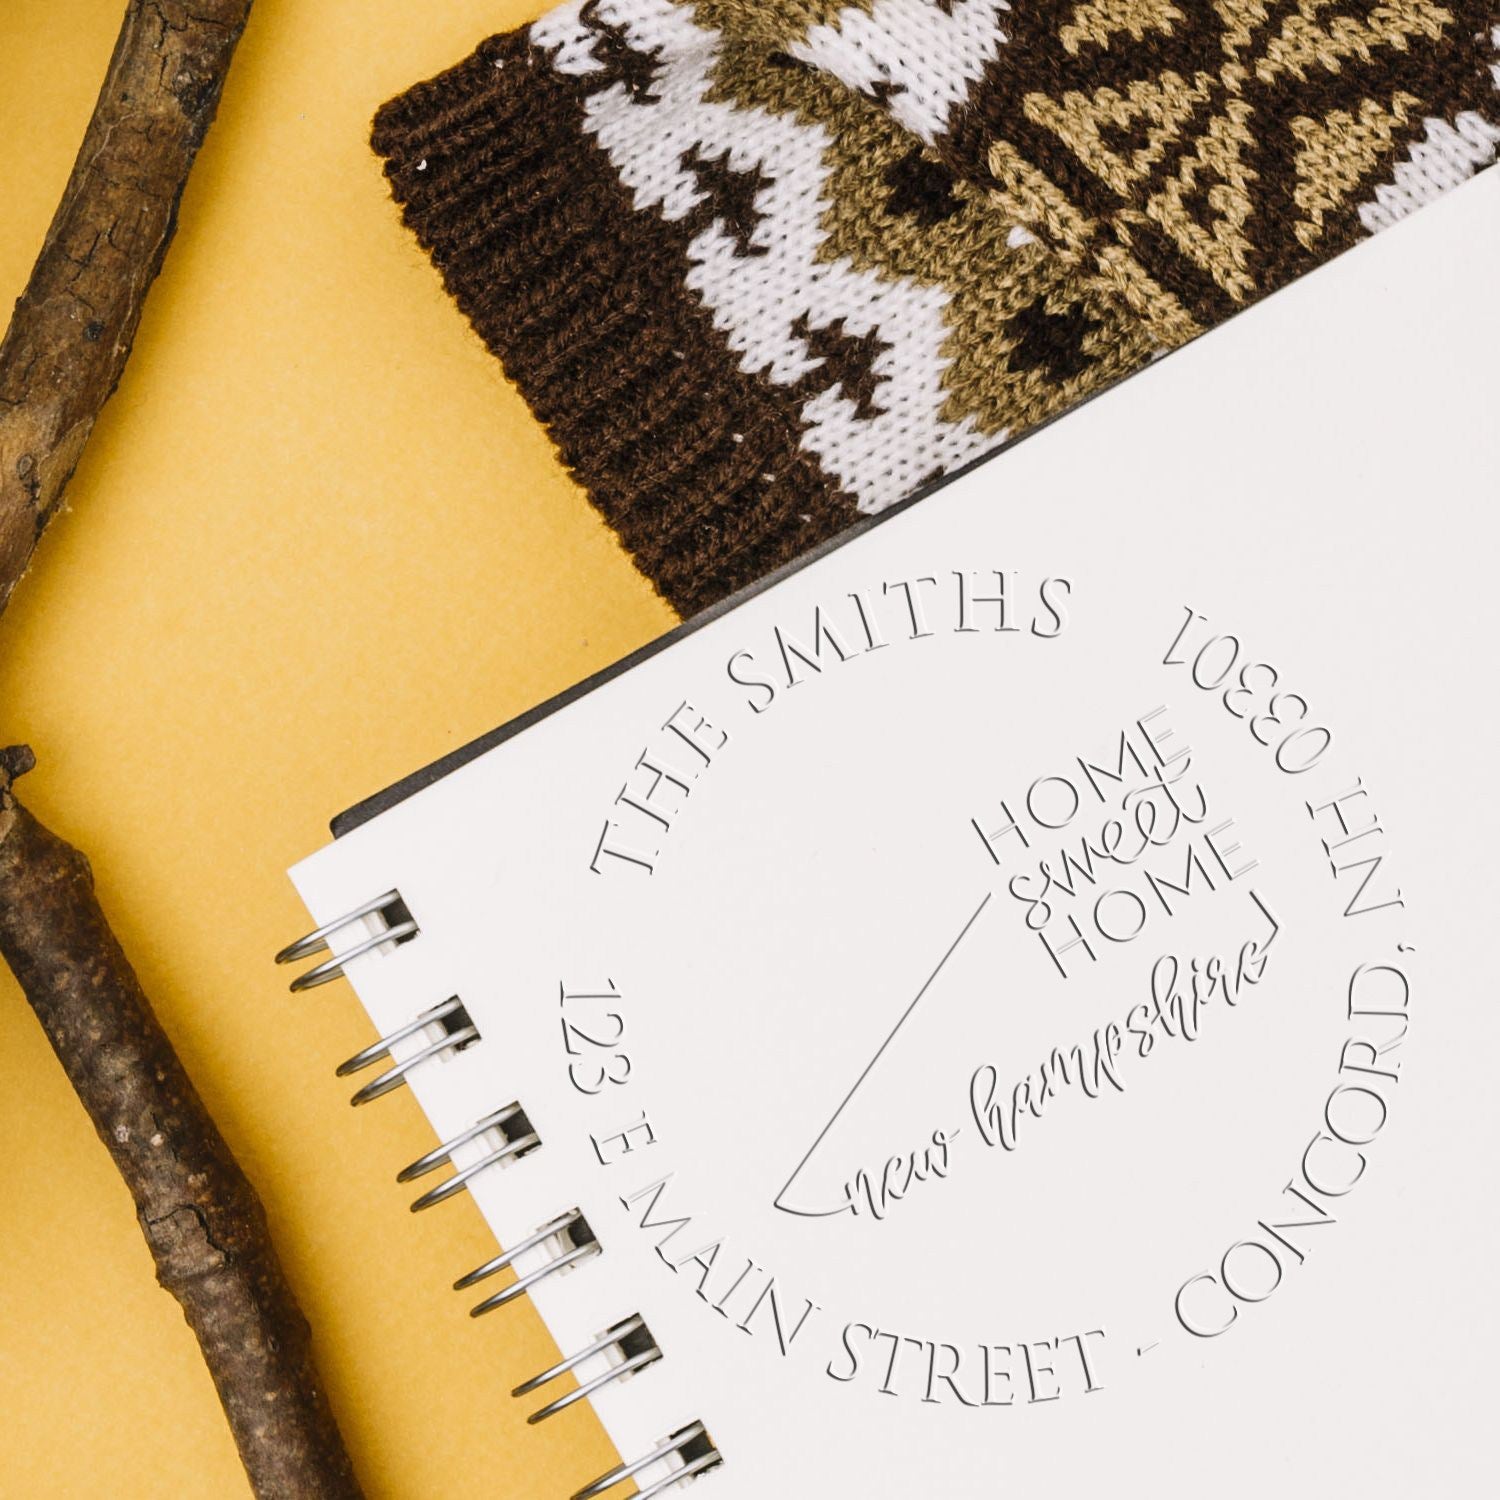 THE SMITHS
HOME
sweet
HOME
new hampshire
123 E MAIN STREET - CONCORD, NH 03301